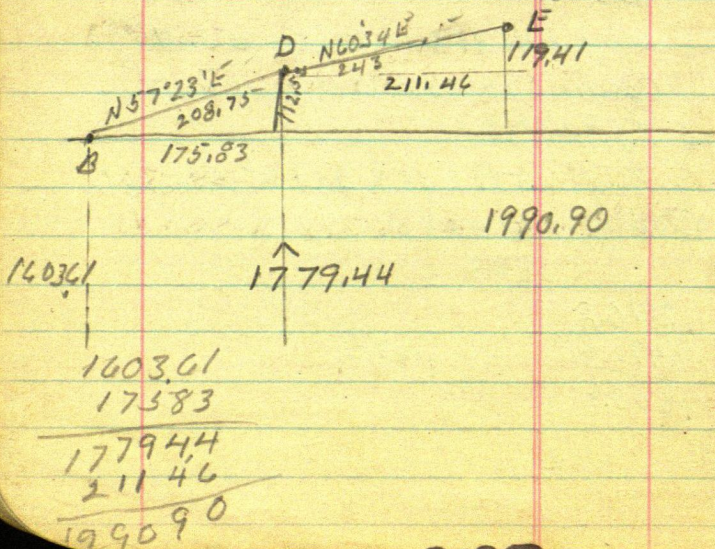 E
D
N60°34'E
119.41
243
211.46
N57°23'E
208.75
112.54
B
175.83
1990.90
1603.61
1779.44
1603.61
17583
1779.44
211 46
1990 90